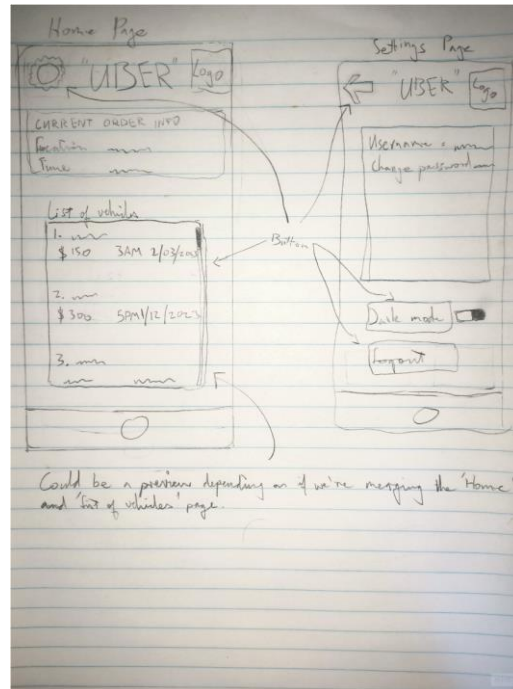 Home Page
"UBER" Logo
CURRENT ORDER INFO
Location
Time
List of vehicles
1.
$150 3AM 2/03/2023
2.
$300 5PM 1/12/2023
3.
Button
Settings Page
"UBER" Logo
Username :
Change password
Dark mode
Logout
Could be a preview depending on if we're merging the 'Home'
and 'list of vehicles' page.